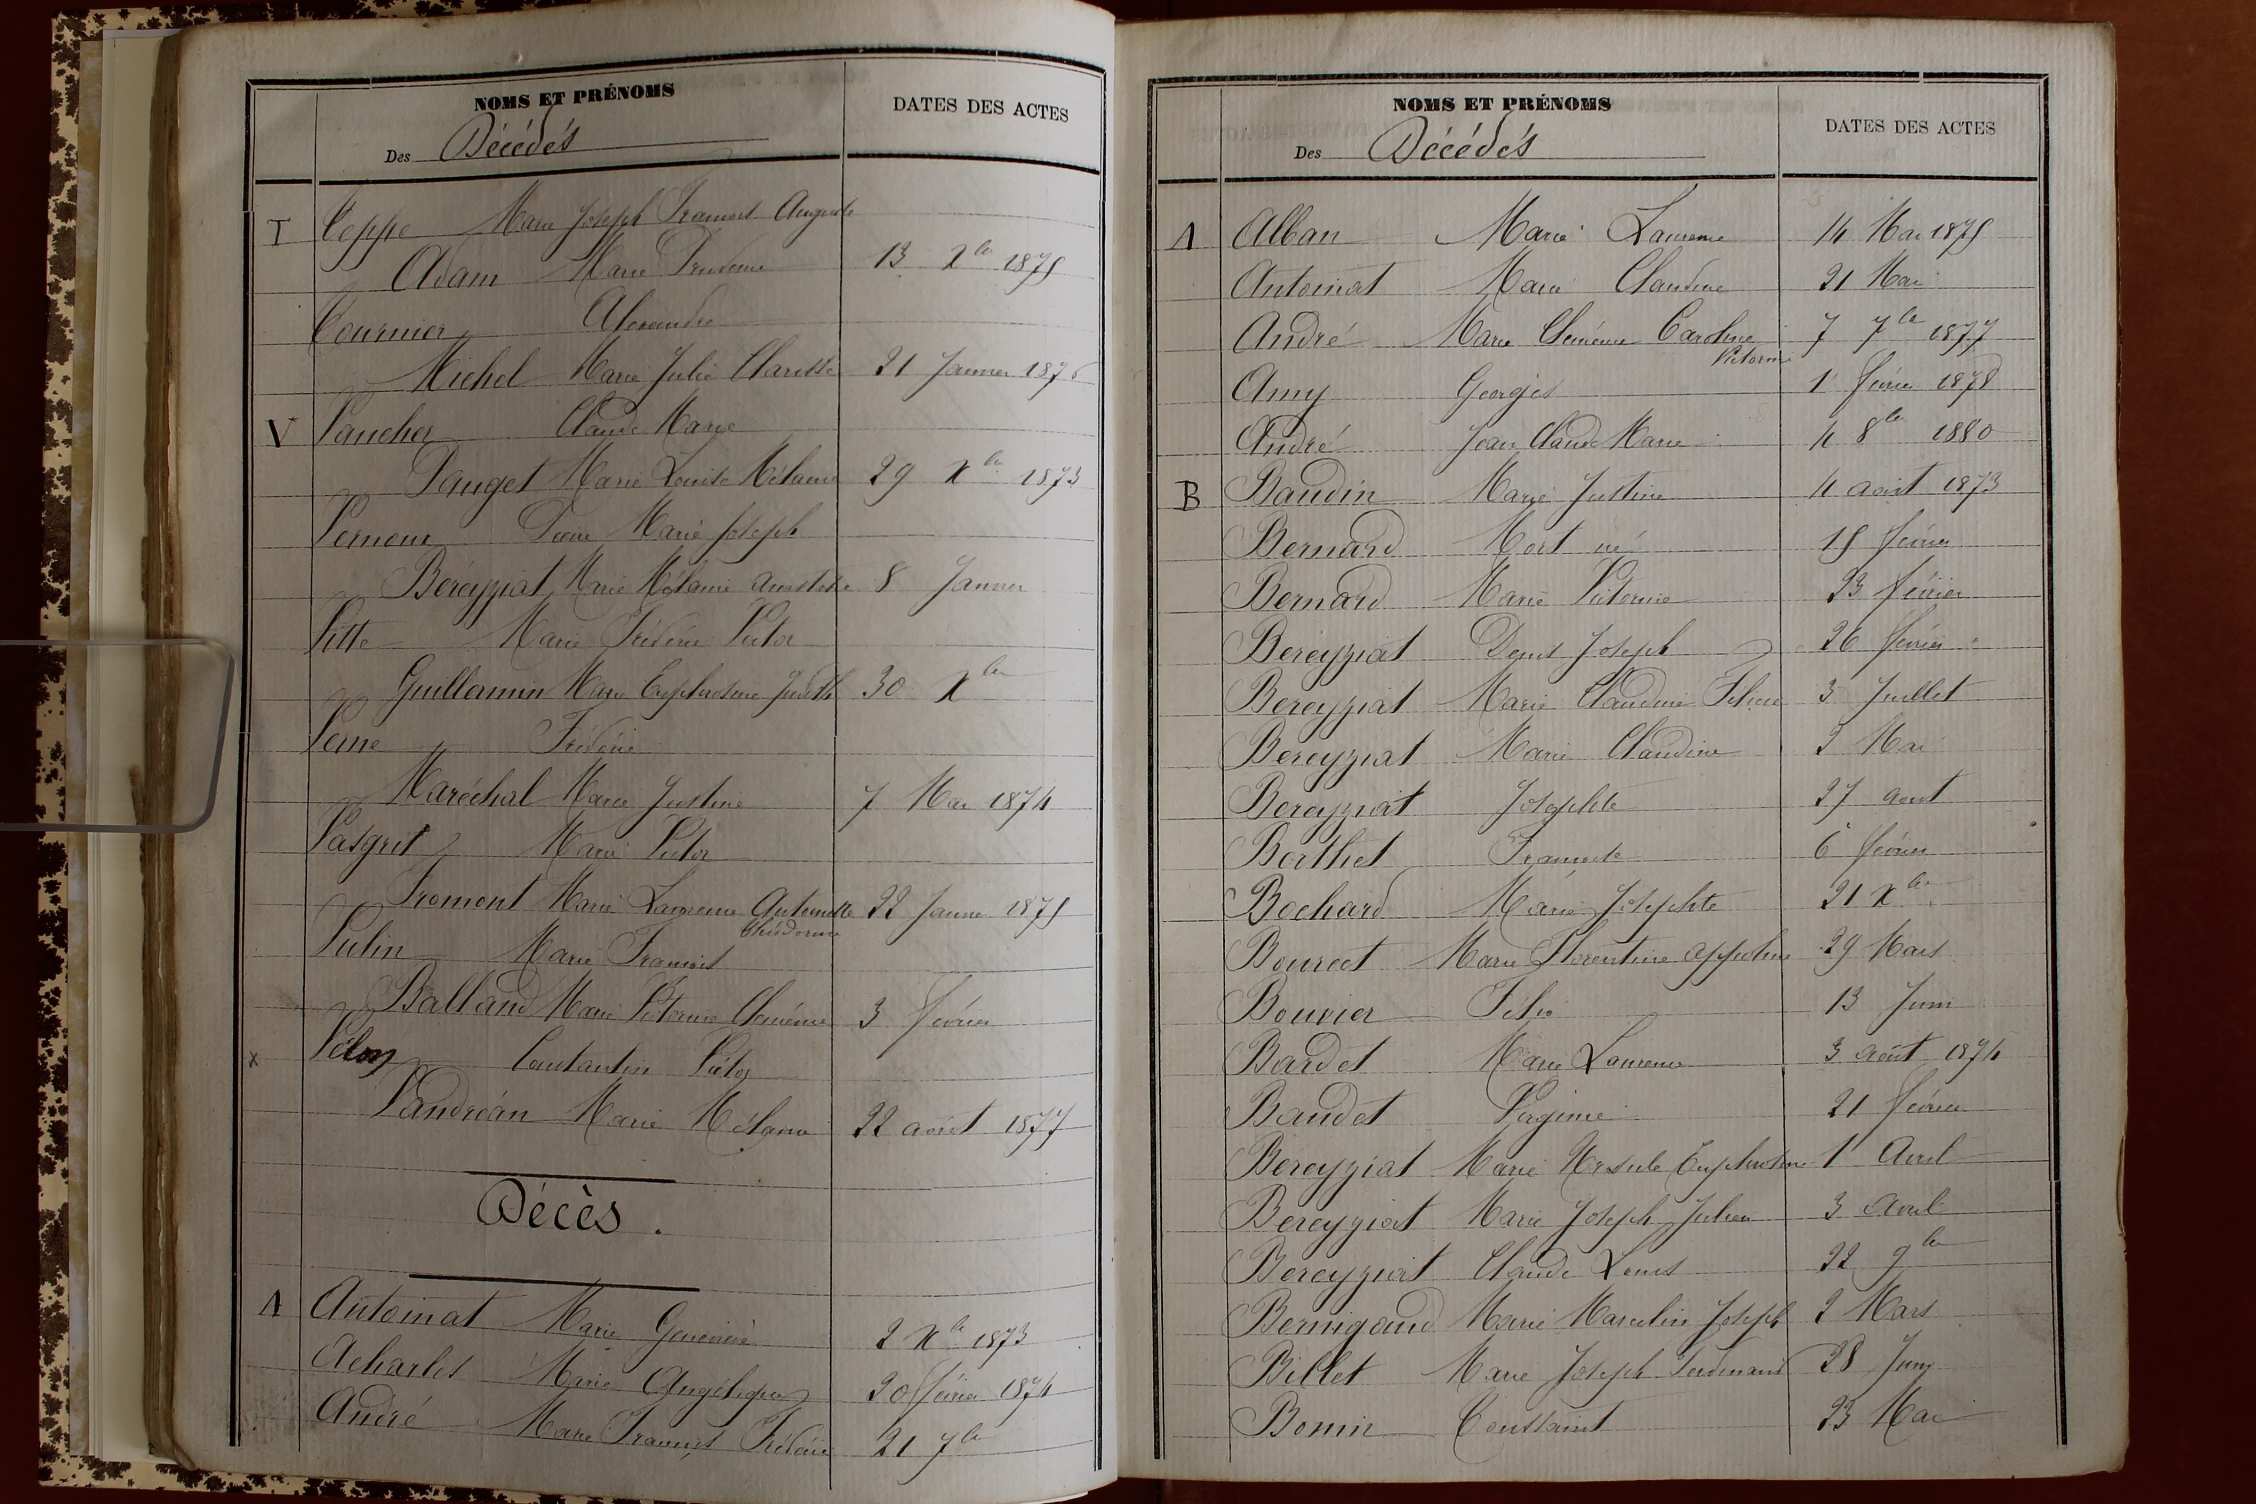 NOMS ET PRÉNOMS
DATES DES ACTES
Des Décédés
T Teppe Marie Joseph François Auguste
Adam Marie Prudence 13 Xbre 1875
Tournier Alexandre
Michel Marie Julie Clarisse 21 Janvier 1876
V Vaucher Claude Marie
Pauget Marie Louise Mélanie 29 Xbre 1873
Verneur Pierre Marie Joseph
Béreyziat Marie Mélanie 8 Janvier
Vitte Marie Frédéric Victor
Guillermin Marie Euphrosine Judith 30 Xbre
Verne Frédéric
Maréchal Marie Justine 7 Mai 1874
Vasgret Marie Victor
Fromont Marie Laurence Antoinette 22 Janvier 1875
Théodorine
Vulin Marie François
Balland Marie Victorine Clémence 3 février
x Velon Constantin Victor
Vandroán Marie Mélanie 22 août 1877
Décès.
A Antoinat Marie Geneviève 2 Xbre 1873
Acharles Marie Angélique 20 février 1874
André Marie François Frédéric 21 7bre
NOMS ET PRÉNOMS
DATES DES ACTES
Des Décédés
A Alban Marie Laurence 14 Mai 1875
Antoinat Marie Claudine 21 Mai
André Marie Clémence Caroline 7 7bre 1877
Victorine
Amy Georges 1er février 1878
André Jean Claude Marie 4 8bre 1880
B Baudin Marie Justine 4 août 1873
Bernard Mort né 15 février
Bernard Marie Victorine 23 février
Béreyziat Denis Joseph 26 février
Béreyziat Marie Claudine 3 Juillet
Béreyziat Marie Claudine 2 Mai
Béreyziat Josephte 27 aout
Berthet Françoise 6 février
Bochard Marie Josephte 21 Xbre
Bourcet Marie Florentine Appoline 29 Mars
Bouvier Félix 13 Juin
Bardet Marie Laurence 3 août 1874
Baudet Virginie 21 février
Béreyziat Marie Ursule Euphrosine 1er Avril
Béreyziat Marie Joseph Julien 3 Avril
Béreyziat Claude Louis 22 9bre
Bernigaud Marie Marcelin Joseph 2 Mars
Billet Marie Joseph Ferdinand 28 Juin
Bonnin Constant 23 Mai